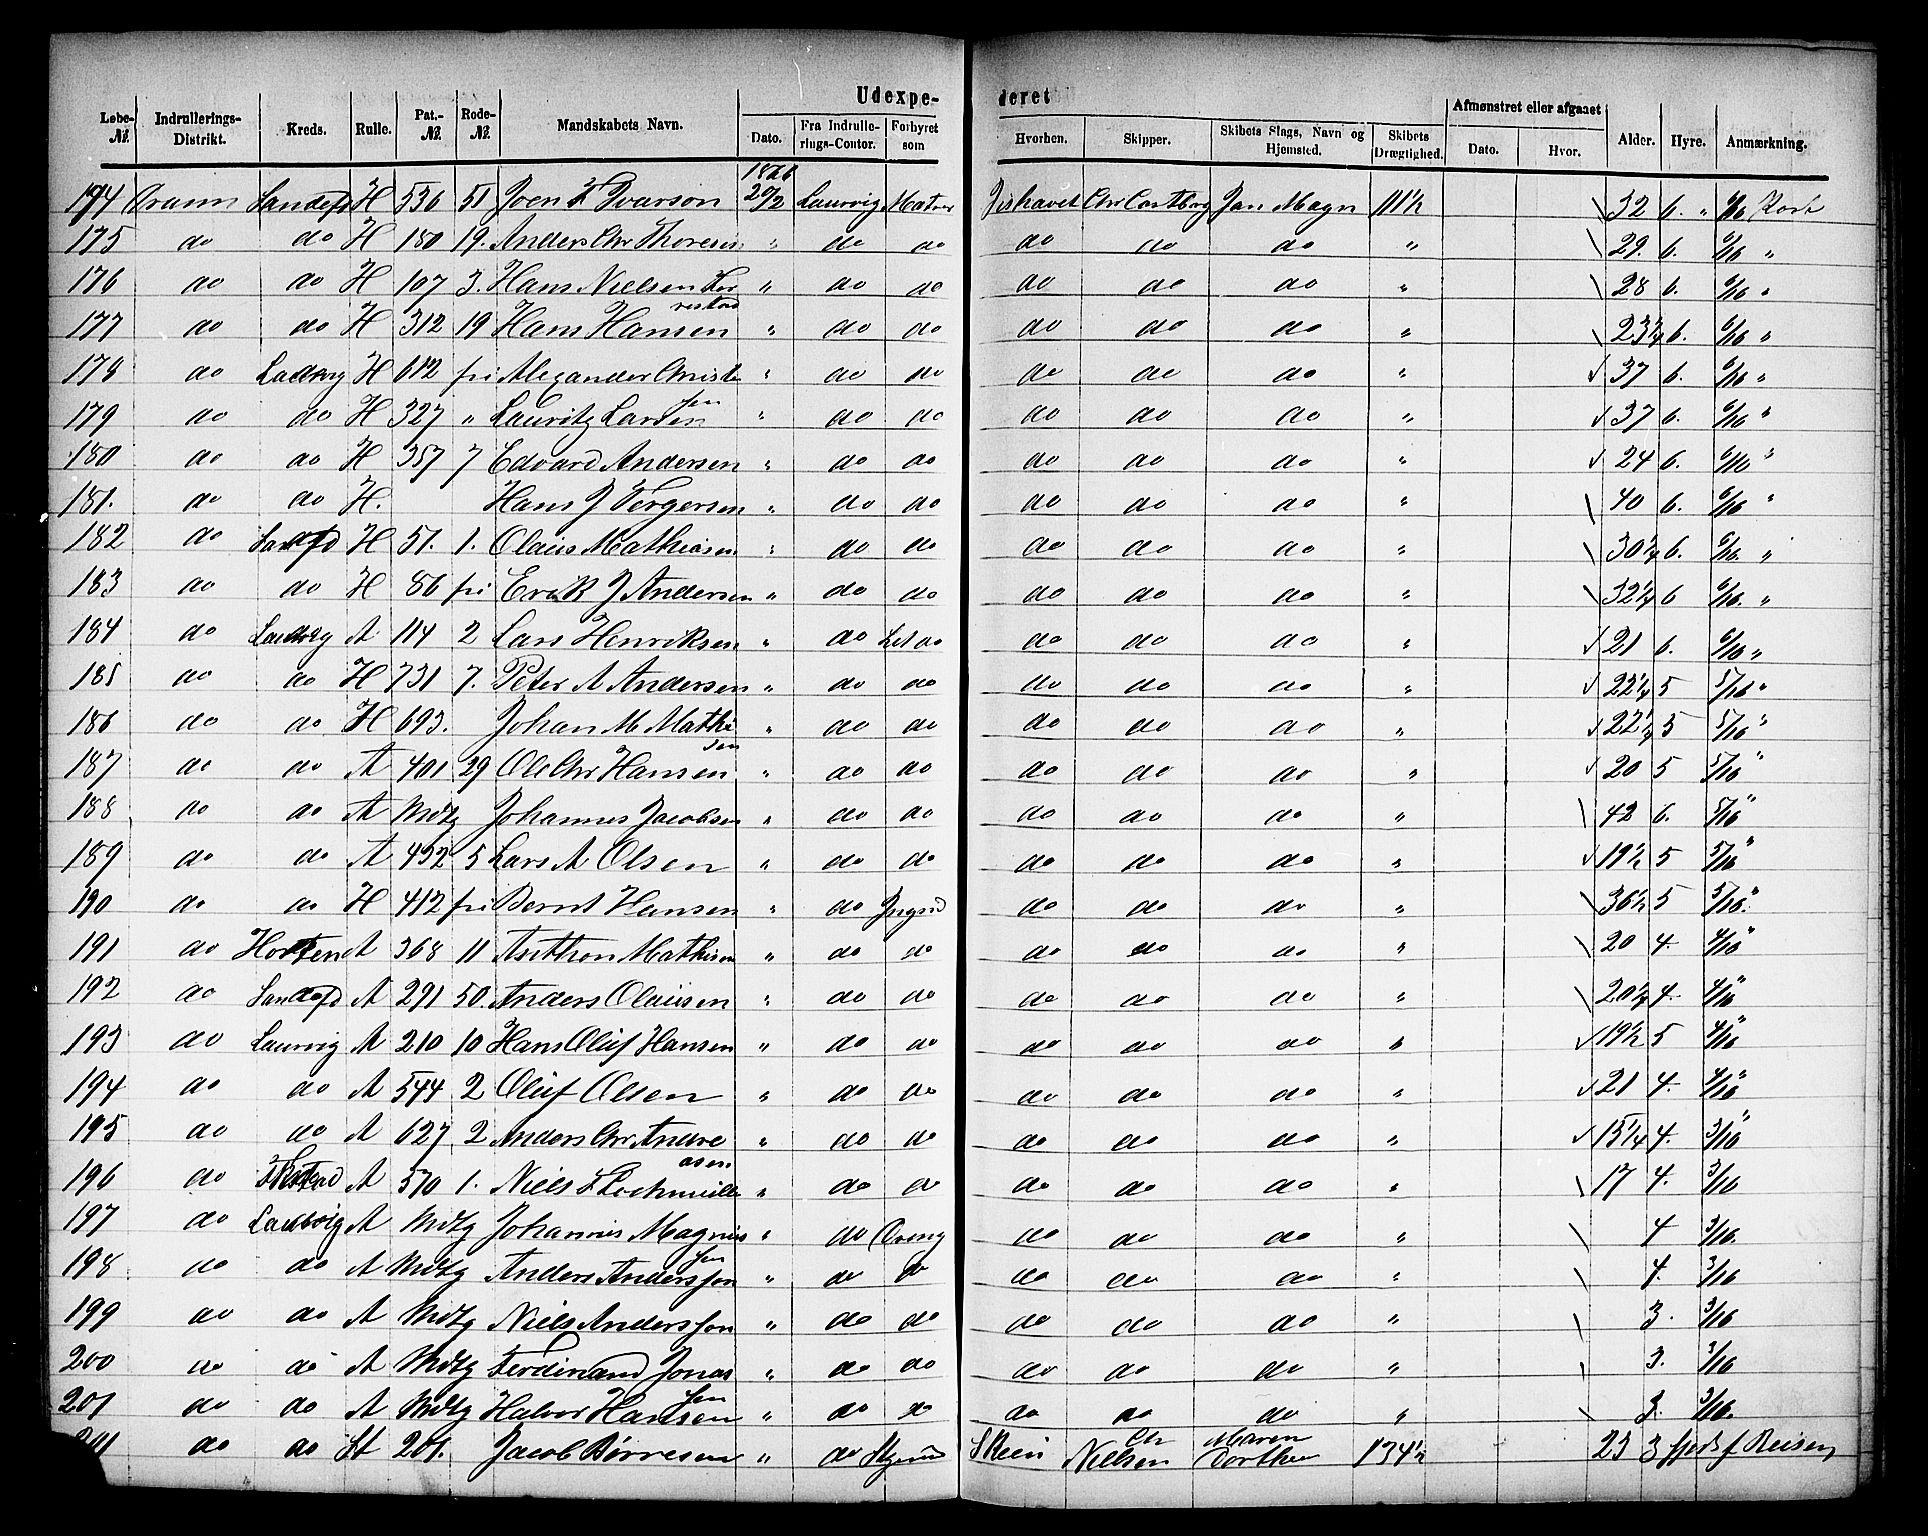 Udexpe- deret
Løbe- № Indrullerings- Distrikt. Kreds. Rulle. Pat.- № Rode- № Mandskabets Navn. Dato. Fra Indrulle- rings-Contor. Forhyret som Hvorhen. Skipper. Skibets Slags, Navn og Hjemsted. Skibets Drægtighed. Afmønstret eller afgaaet Dato. Hvor. Alder. Hyre. Anmærkning.
1876
194 Dramn Sandefd H 536 51 Joen Ivarson 20/2 Laurvig Matros Ishavet Chr Castberg Jan Mayn 111½ 32 6. „ 6/10 Kort
175 do do H 180 19. Anders Chr Thoresen „ do do do do do „ 29. 6. 6/10 „
176 do do H 107 3. Hans Nielsen „ do do do do do „ 28 6. 6/10 „
177 do do H 312 19 Hans Hansen „ do do do do do „ 23¾ 6. 6/10 „
178 do Laurvig H 612 fri Alexander Christensen „ do do do do do „ 37 6. 6/10 „
179 do do H 327 „ Lauritz Larsen „ do do do do do „ 37 6. 6/10 „
180 do do H 357 7 Edvard Andersen „ do do do do do „ 24 6. 6/10 „
181. do do H. Hans J Tergersen „ do do do do do „ 40 6. 6/10 „
182 do Sandefd H 51. 1. Olaus Mathiasen „ do do do do do „ 30¼ 6. 6/10. „
183 do do H 86 fri Erik J Andersen „ do do do do do „ 32¼ 6 6/10. „
184 do Laurvig A 114 2 Lars Henriksen „ do Let do do do do „ 21 6. 6/10 „
185 do do H 731 7. Peter A Andersen „ do do do do do „ 22¼ 5 5/10 „
186 do do H 693. Johan M Mathisen „ do do do do do „ 22½ 5 5/10 „
187 do do A 401 29 Ole Chr Hansen „ do do do do do „ 20 5 5/10 „
188 do do A Mdtg Johannes Jacobsen „ do do do do do „ 42 6. 5/10 „
189 do do A 432 5 Lars A Olsen „ do do do do do „ 19½ 5 5/10 „
190 do do H 412 fri Bernt Hansen „ do Jngmd do do do „ 36½ 5 5/10. „
191 do Horten A 368 11 Anthon Mathisen „ do do do do do „ 20 4. 4/10 „
192 do Sandefd A 291 50. Anders Olausen „ do do do do do „ 20½ 4. 4/10 „
193 do Laurvig A 210 10 Hans Oluf Hansen „ do do do do do „ 19½ 5 4/10 „
194 do do A 544 2 Oluf Olsen „ do do do do do „ 21 4. 4/10 „
195 do do A 627 2 Anders Chr Andreasen „ do do do do do „ 15¼ 4. 3/10 „
196 do A 570 1. Niels „ do do do do do „ 17 4. 3/10
197 do Laurvig A Mdtg Johannes Magnussen „ do Dreng do do do „ 4 3/10.
198 do do A Mdtg Anders Andersson „ do do do do do „ 4. 3/10
199 do do A Mdtg Niels Andersson „ do do do do do „ 3. 3/10
200 do do A Mdtg Ferdinand Jonassen „ do do do do do „ 3. 3/10
201 do do A Mdtg Halvor Hansen „ do do do do do „ 3. 3/10.
201 do do St 201. Jacob Børresen „ do Skien Chr Nielsen Maren Dorthea 134½ 23 3 f Reisen